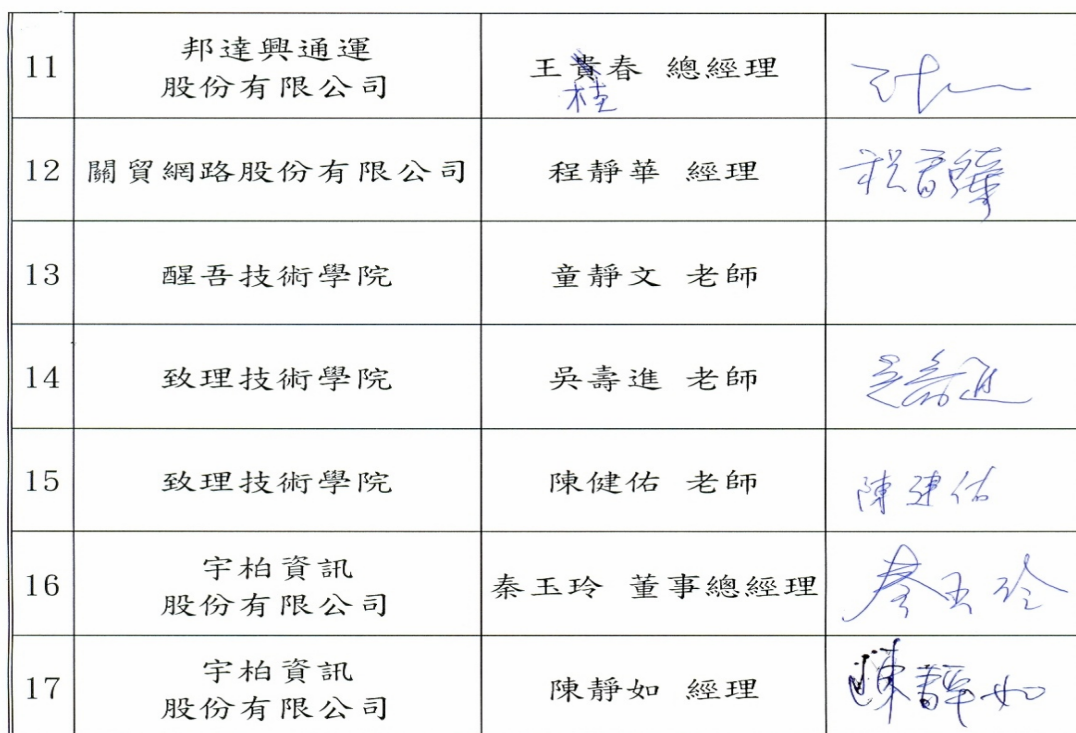 11
邦達興通運
股份有限公司
王貴春 總經理
桂
12
關貿網路股份有限公司
程靜華 經理
程靜華
13
醒吾技術學院
童靜文 老師
14
致理技術學院
吳壽進 老師
吳壽進
15
致理技術學院
陳健佑 老師
陳建佑
16
宇柏資訊
股份有限公司
秦玉玲 董事總經理
秦玉玲
17
宇柏資訊
股份有限公司
陳靜如 經理
陳靜如